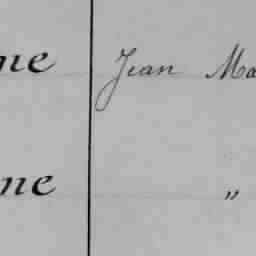 ne Jean Ma
ne "